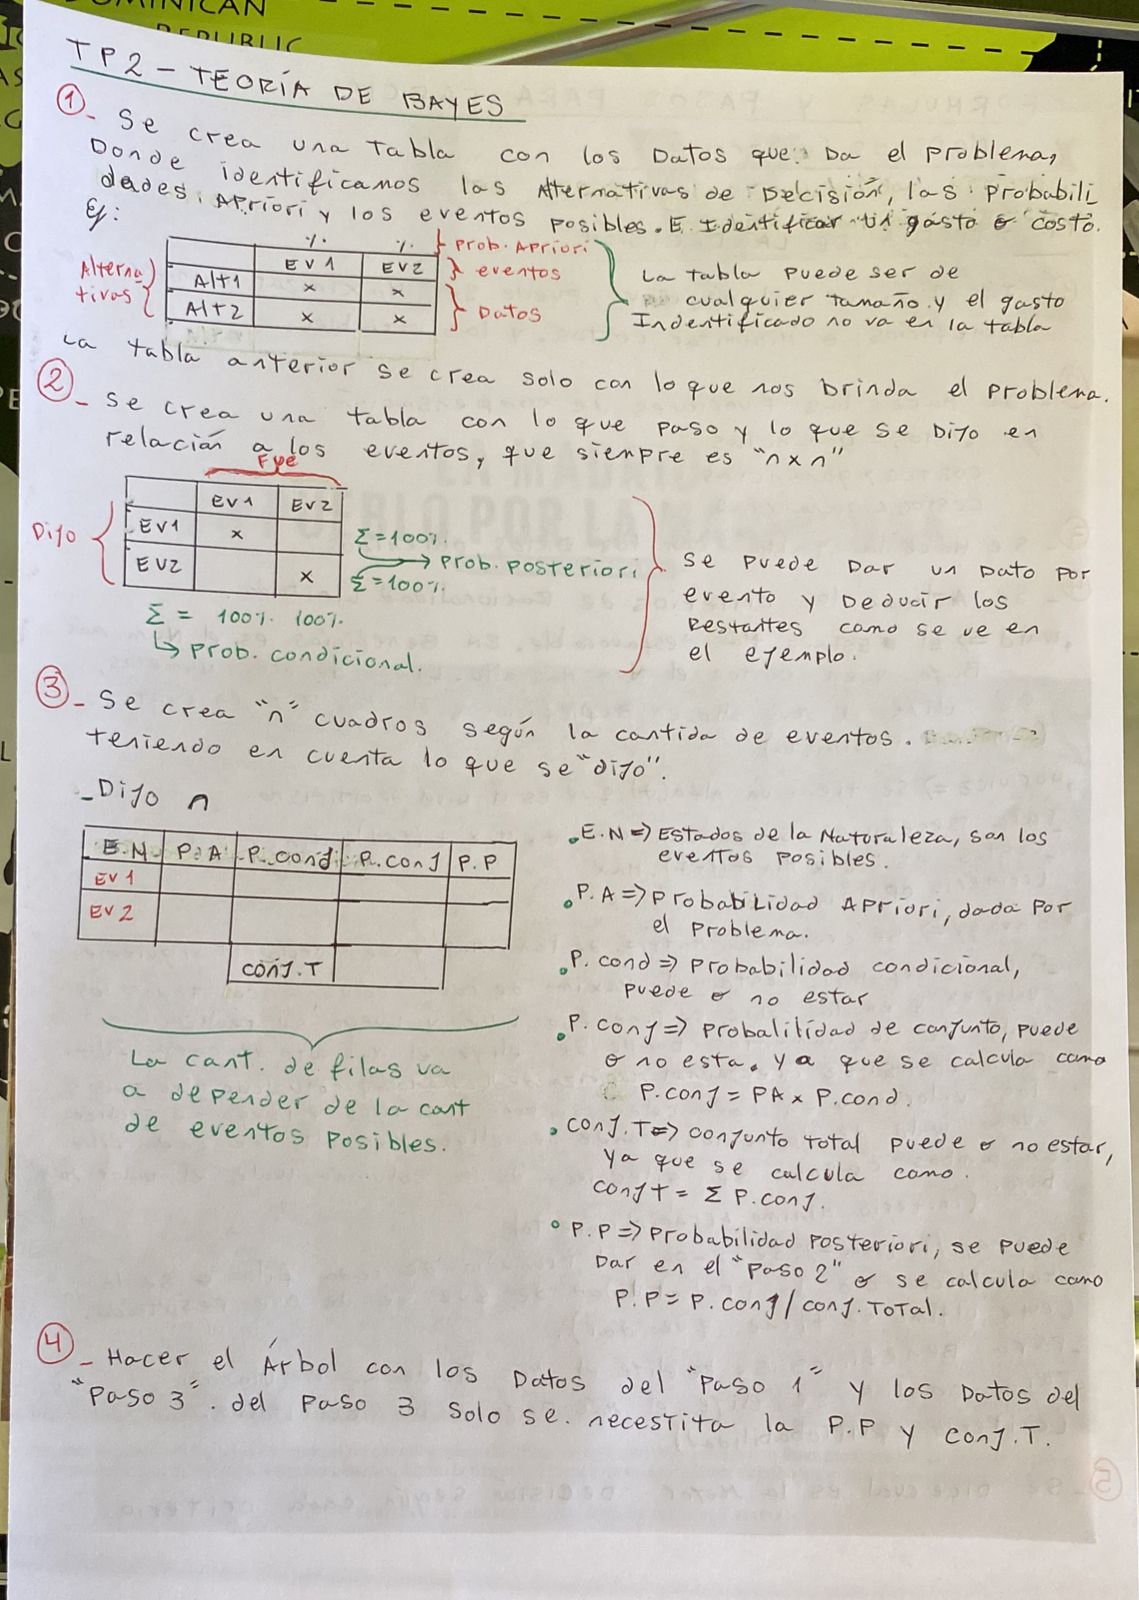 DOMINICAN
REPUBLIC
TP2 - TEORÍA DE BAYES
①- Se crea una tabla con los Datos que Da el problema,
Donde identificamos las Alternativas de Decisión, las Probabili
dades Apriori y los eventos posibles. E Identificar un gasto o costo.
Ej:
% % } prob. Apriori
EV1 EV2 } eventos
Alt1 x x
Alt2 x x
} Datos
Alterna
tivas
La tabla puede ser de
cualquier tamaño y el gasto
Indentificado no va en la tabla
La tabla anterior se crea solo con lo que nos brinda el problema.
②- Se crea una tabla con lo que paso y lo que se Dijo en
relación a los eventos, que siempre es "n x n"
Fue
EV1 EV2
Dijo
EV1 x
EV2 x
Σ = 100%
→ prob. posteriori
Σ = 100%
Σ = 100% 100%
↳ prob. condicional.
Se puede Dar un Dato por
evento y Deducir los
Restantes como se ve en
el ejemplo.
③- Se crea "n" cuadros según la cantida de eventos.
teniendo en cuenta lo que se "dijo".
- Dijo n
E.N P.A P.cond P.conj P.P
EV1
EV2
conj.T
La cant. de filas va
a depender de la cant
de eventos posibles.
. E.N => Estados de la Naturaleza, son los
eventos posibles.
. P.A => probabilidad Apriori, dada por
el problema.
. P.cond => probabilidad condicional,
puede o no estar
. P.conj => probalilidad de conjunto, puede
o no esta. ya que se calcula como
P.conj = PA x P.cond.
. conj.T => conjunto total puede o no estar,
ya que se calcula como.
conj T = Σ P.conj.
. P.P => probabilidad posteriori, se puede
Dar en el "paso 2" o se calcula como
P.P = P.conj / conj.TOTAL.
④- Hacer el Árbol con los Datos del "Paso 1" y los Datos del
"Paso 3". del paso 3 solo se. necestita la P.P y conj.T.